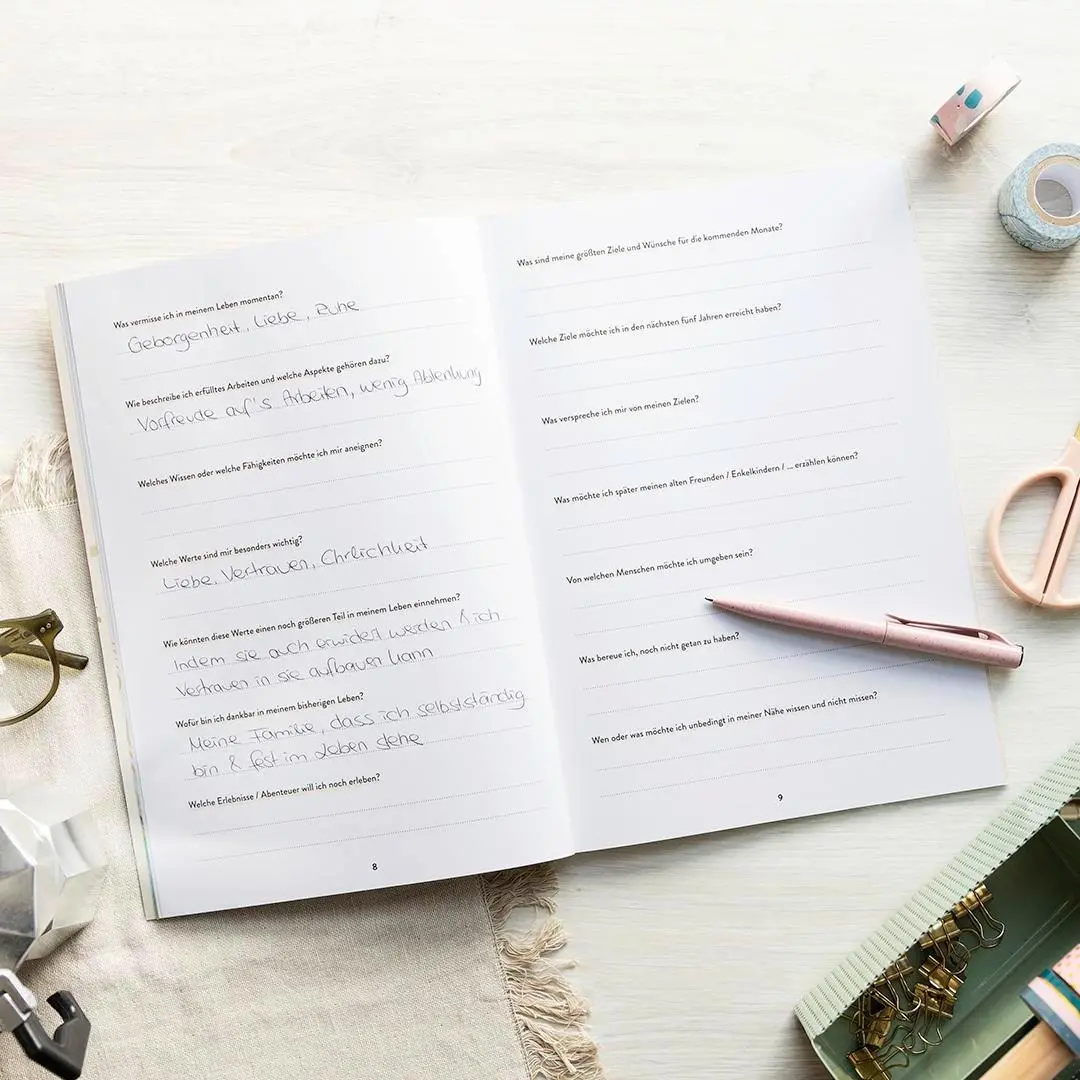 Was vermisse ich in meinem Leben momentan?
Geborgenheit, Liebe, Ruhe
Wie beschreibe ich erfülltes Arbeiten und welche Aspekte gehören dazu?
Vorfreude auf's Arbeiten, wenig Ablenkung
Welches Wissen oder welche Fähigkeiten möchte ich mir aneignen?
Welche Werte sind mir besonders wichtig?
Liebe, Vertrauen, Ehrlichkeit
Wie könnten diese Werte einen noch größeren Teil in meinem Leben einnehmen?
Indem sie auch erwidert werden & ich
Vertrauen in sie aufbauen kann
Wofür bin ich dankbar in meinem bisherigen Leben?
Meine Familie, dass ich selbstständig
bin & fest im Leben stehe
Welche Erlebnisse / Abenteuer will ich noch erleben?
8
Was sind meine größten Ziele und Wünsche für die kommenden Monate?
Welche Ziele möchte ich in den nächsten fünf Jahren erreicht haben?
Was verspreche ich mir von meinen Zielen?
Was möchte ich später meinen alten Freunden / Enkelkindern / ... erzählen können?
Von welchen Menschen möchte ich umgeben sein?
Was bereue ich, noch nicht getan zu haben?
Wen oder was möchte ich unbedingt in meiner Nähe wissen und nicht missen?
9